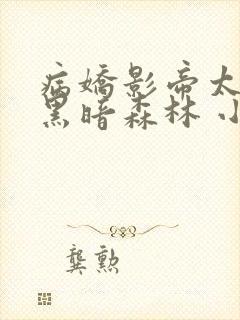 病嬌影帝太
黑暗森林 小
龔勲